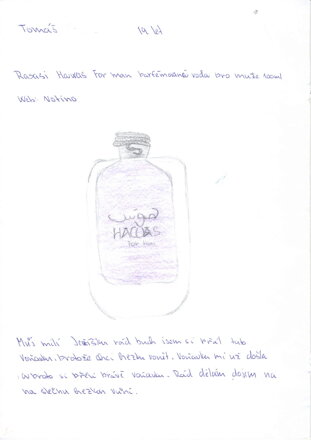 Tomáš 19 let
Rasasi Hawas For man parfémovaná voda pro muže 100ml
Web: Notino
هوس
HAWAS
for him
Můj milí Ježíšku rád bych jsem si přál tub
voňavku. Protože chci hezky vonět. Voňavka mi už došla
si přeji právě voňavku. Rád dělám dojem na
na slečnu hezkou vůní.